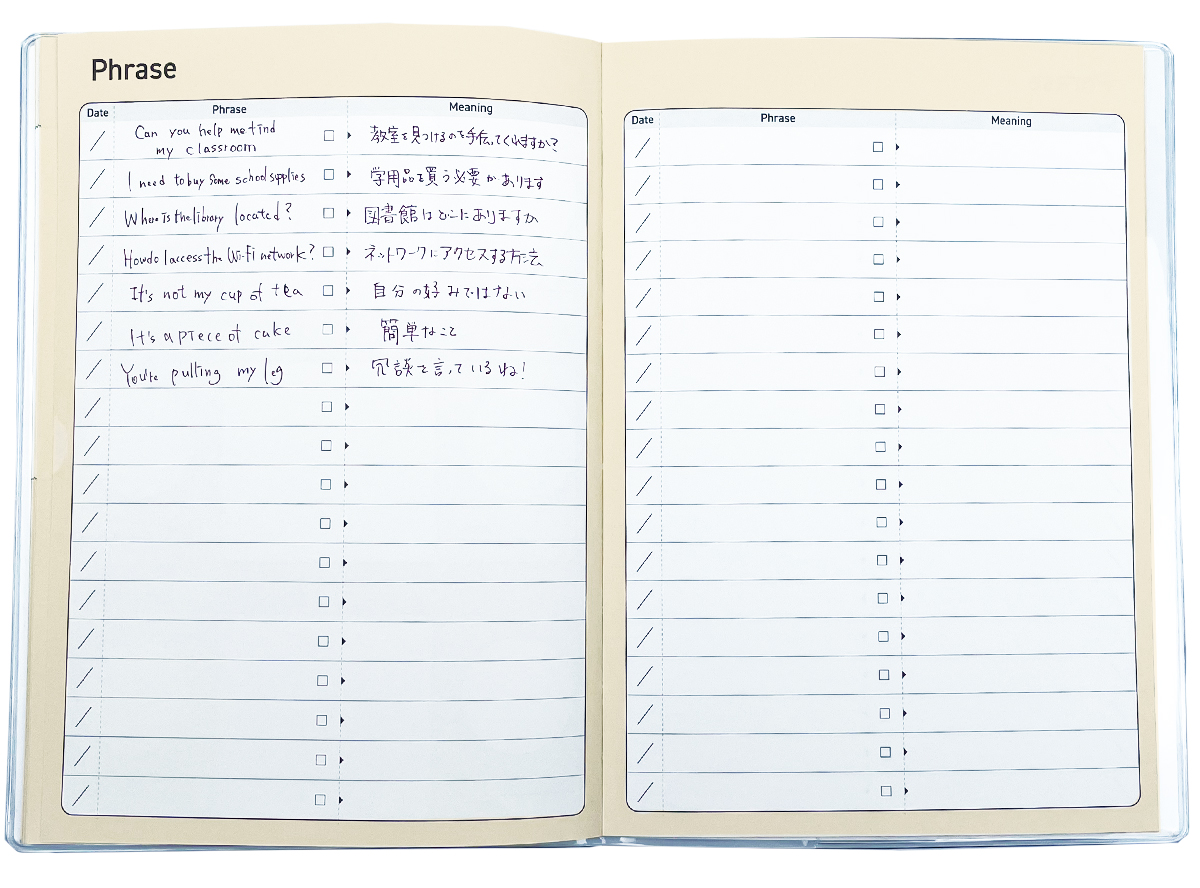 Phrase
Date Phrase Meaning
Can you help me find
my classroom
教室を見つけるのを手伝ってくれますか?
I need to buy some school supplies
学用品を買う必要があります
Where is the library located?
図書館はどこにありますか
How do I access the Wi-Fi network?
ネットワークにアクセスする方法
It's not my cup of tea
自分の好みではない
It's a piece of cake
簡単なこと
You're pulling my leg
冗談を言っているね!
Date Phrase Meaning